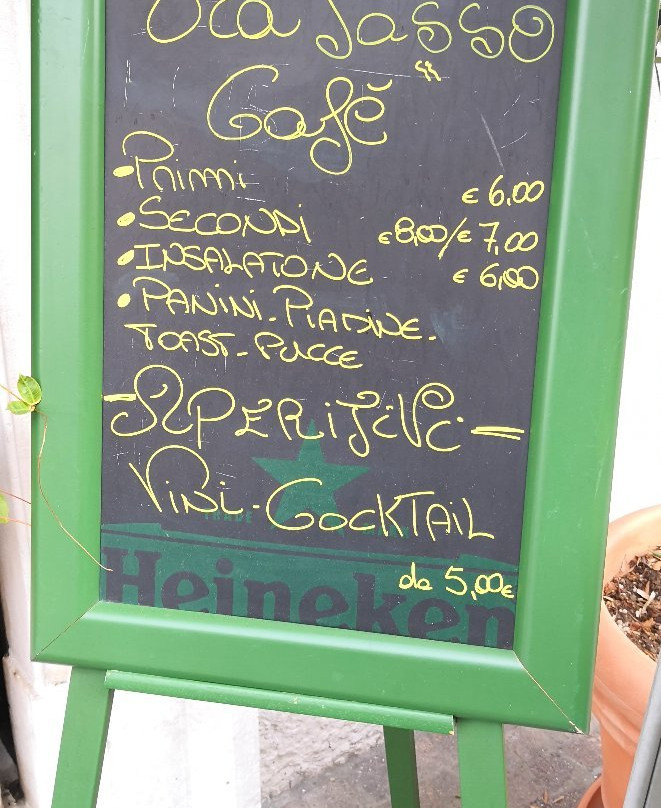 Café
• Primi € 6,00
• SECONDI € 8,00/€ 7,00
• INSALATONE € 6,00
• PANINI - PIADINE -
TOAST - PUCCE
- APERITIVI -
VINI - COCKTAIL
da 5,00€
Heineken